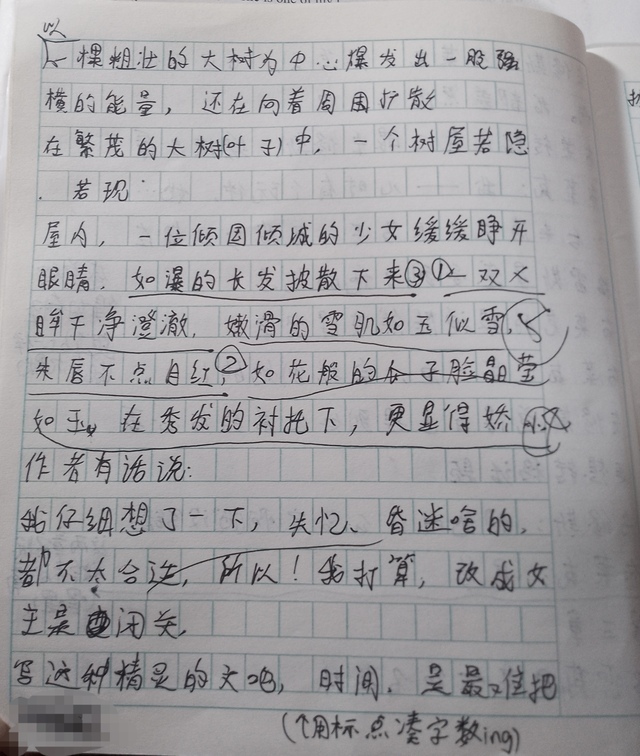 以
一棵粗壮的大树为中心爆发出一股强
横的能量，还在向着周围扩散
在繁茂的大树(叶子)中，一个树屋若隐
若现
屋内，一位倾国倾城的少女缓缓睁开
眼睛，如瀑的长发披散下来③①一双
眸干净澄澈，嫩滑的雪肌如玉似雪，
朱唇不点自红，②如花般的 子脸晶莹
如玉，在秀发的衬托下，更显得娇小
作者有话说：
我仔细想了一下，失忆、昏迷啥的，
都不太合适，所以！我打算，改成女
主是 闭关，
写这种精灵的文吧，时间，是最 佳把
(个用标点凑字数ing)